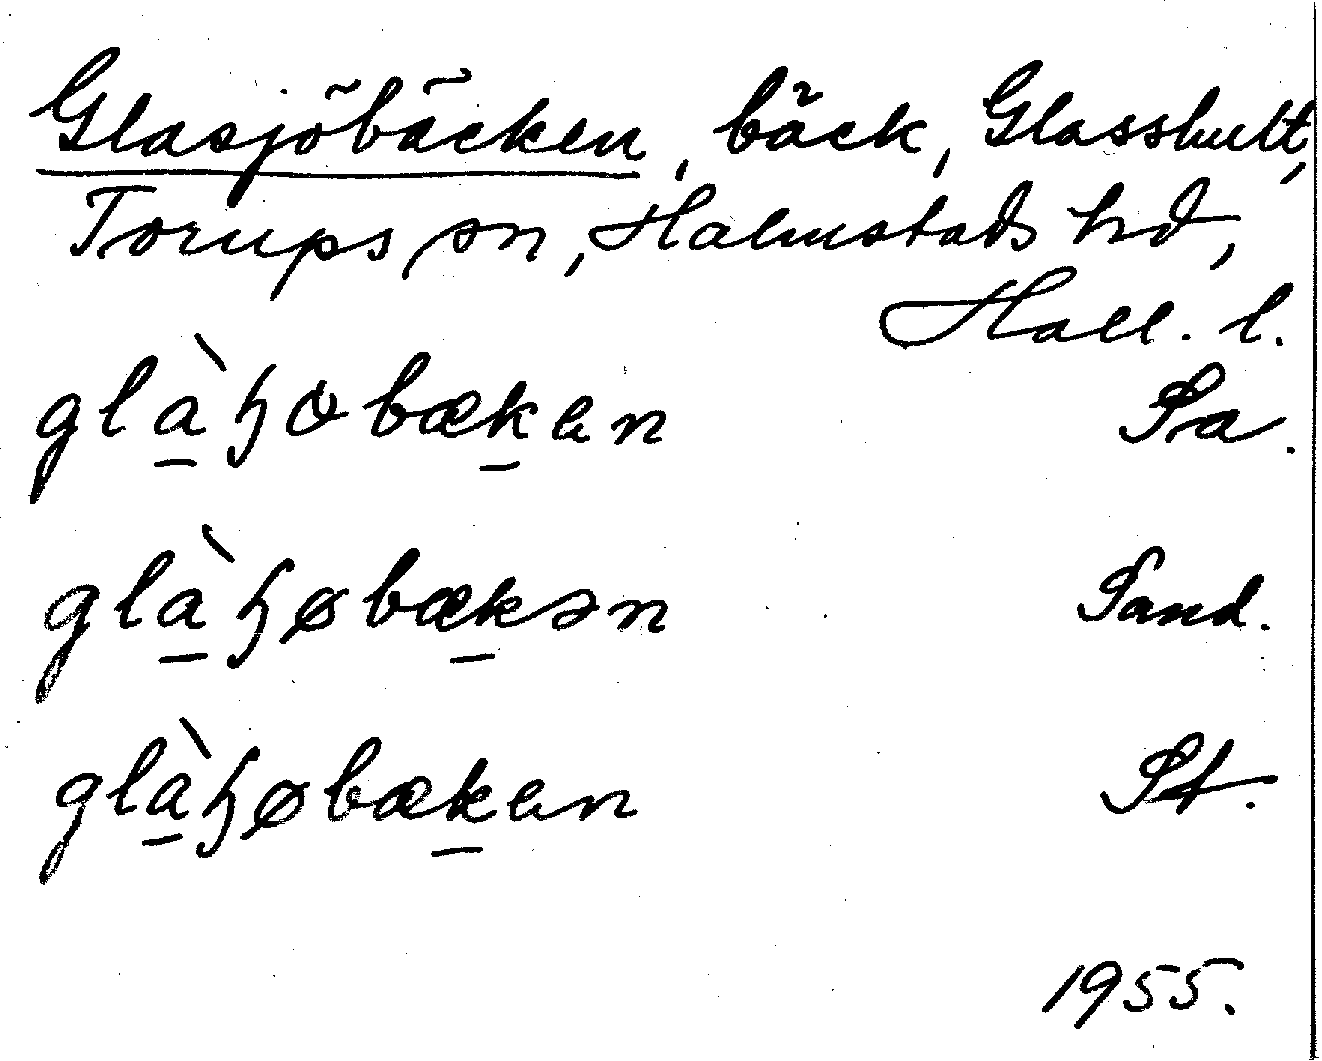 Glasjöbäcken, bäck, Glasshult,
Torups sn, Halmstads hd,
Hall. l.
glàɧobæken Pa.
glàɧøbækən Sand.
glàɧøbæken St.
1955.